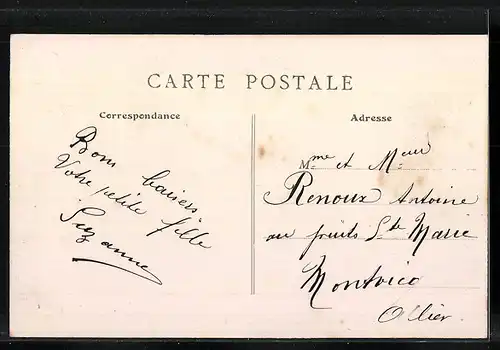 CARTE POSTALE
Correspondance
Bons baisers
Votre petite fille
Suzanne
Adresse
Mme et Meur
Renoux Antoine
au puits Ste Marie
Montvicq
Allier